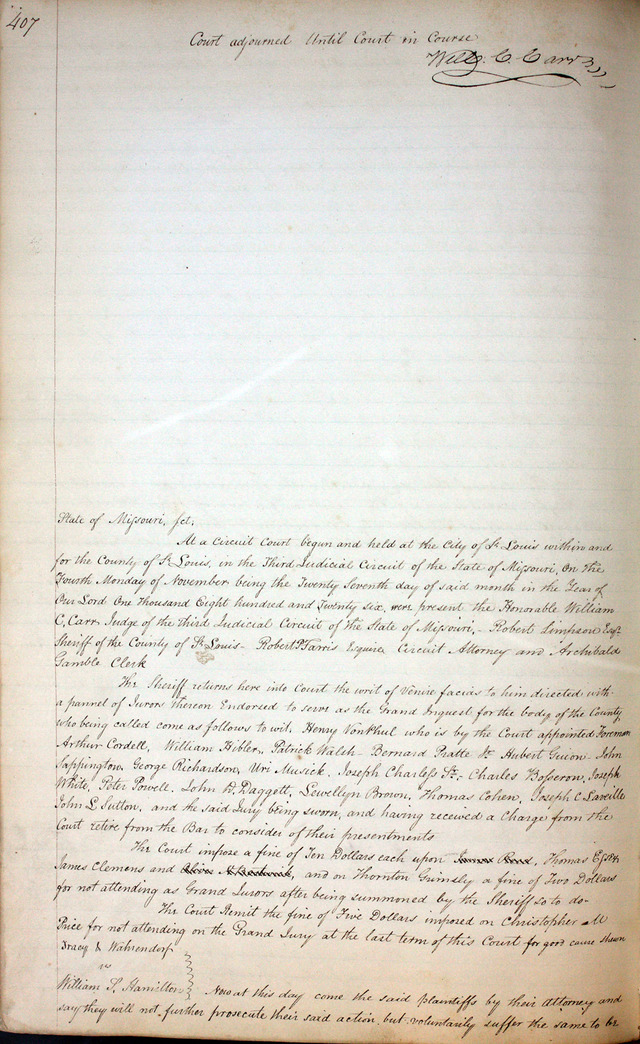 407
Court adjourned Until Court in Course
Will. C. Carr
State of Missouri, sct.
At a Circuit Court begun and held at the City of St Louis within and
for the County of St Louis, in the Third Judicial Circuit of the State of Missouri, On the
Fourth Monday of November being the Twenty Seventh day of said month in the Year of
Our Lord One Thousand Eight hundred and Twenty six, were present the Honorable William
C. Carr Judge of the third Judicial Circuit of the State of Missouri,- Robert Simpson Esqr
Sheriff of the County of St Louis- Robert P Farris Esquire Circuit Attorney and Archibald
Gamble Clerk
The Sheriff returns here into Court the writ of Venire facias to him directed with
a pannel of Jurors thereon Endorsed to serve as the Grand Inquest for the body of the County,
who being called come as follows to wit, Henry VonPhul who is by the Court appointed Foreman
Arthur Cordell, William Hibler, Patrick Walsh. Bernard Pratte Jr Hubert Guion. John
Sappington. George Richardson, Uri Musick. Joseph Charless Sr. Charles Bosseron, Joseph
White, Peter Powell. John D. Daggett, Lewellyn Brown, Thomas Cohen, Joseph C Laveille
John L Sutton, and the said Jury being sworn, and having received a Charge from the
Court retire from the Bar to consider of their presentments
The Court impose a fine of Ten Dollars each upon James Reed, Thomas Essex,
James Clemens and, and on Thornton Grimsly a fine of Two Dollars
for not attending as Grand Jurors after being summoned by the Sheriff so to do-
The Court Remit the fine of Five Dollars imposed on Christopher M
Price for not attending on the Grand Jury at the last term of this Court for good cause shown
Tracy & Wahrendorf
vs
William S. Hamilton
Now at this day come the said plaintiffs by their attorney and
say they will not further prosecute their said action but voluntarily suffer the same to be